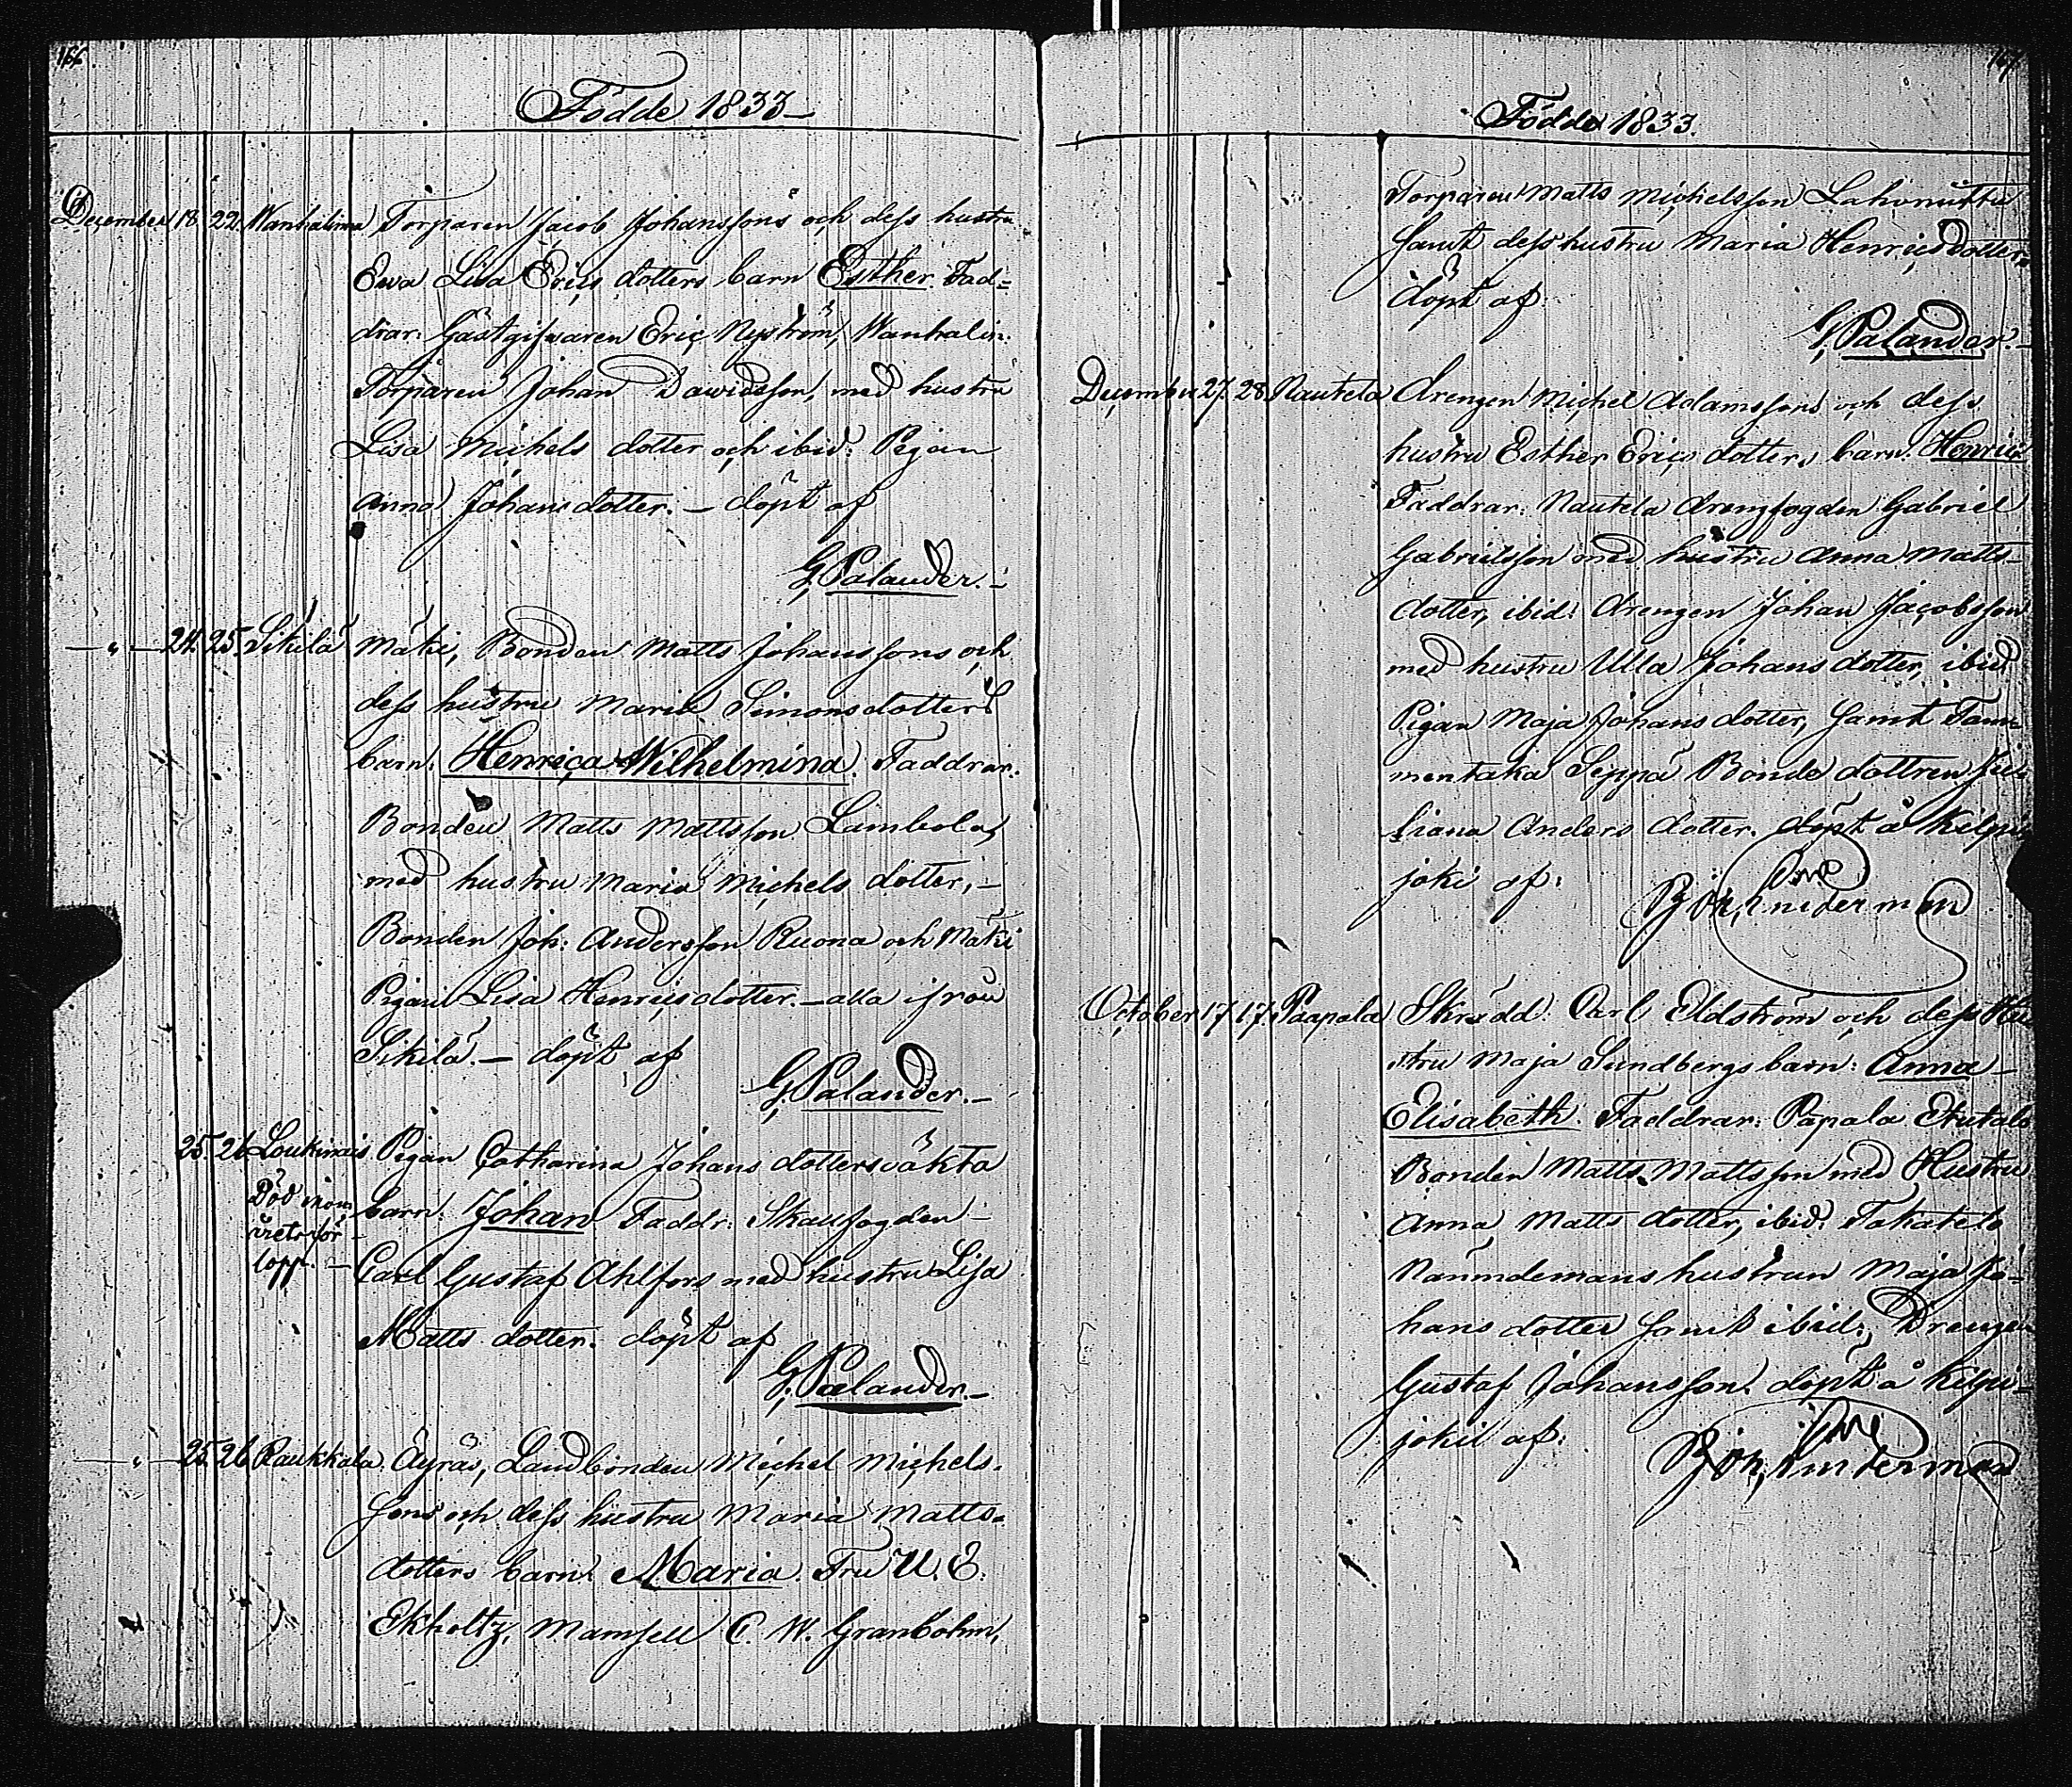 166.
Födde 1833
December 18. 22. Wanhalinna Torparen Jacob Johanssons och dess hustru
Ewa Lisa Erics dotters barn Esther. Fad=
drar: Gästgifwaren Eric Nyström, Wanhalin:
Torparen Johan Dawidsson, med hustru
Lisa Michels dotter och ibid: Pigan
Anna Johans dotter. — döpt af
G. Palander. —
— „ — 24. 25. Sikilä Mäki, Bonden Matts Johanssons och
dess hustru Maria Simonsdotters
barn: Henrica Wilhelmina. Faddrar.
Bonden Matts Mattsson Lambola,
med hustru Maria Michels dotter, —
Bonden Joh: Andersson Ruona och Mäki
Pigan Lisa Henricsdotter. — alla ifrån
Sikilä. — döpt af
G. Palander. —
25. 26. Loukinais Pigan Catharina Johans dotters oäkta
Död inom
årets för-
lopp. —
barn: Johan Faddr: Skallfogden —
Carl Gustaf Ahlfors med hustru Lisa
Matts dotter. döpt af
G. Palander. —
— „ — 25. 26. Raukkala. Äyräs, Landbonden Michel Michels-
sons och dess hustru Maria Matts-
dotters barn: Maria. Fru U. E.
Ekholtz, Mamsell C. W. Granbohm,
167.
Födde 1833.
Torparen Matts Michelsson Lahonuttu
samt dess hustru Maria Henricsdotter
döpt af:
G. Palander. —
December 27. 28. Nautela Drengen Michel Adamssons och dess
hustru Esther Erics dotters barn: Henric
Faddrar: Nautela Drengfogden Gabriel
Gabrielsson med hustru Anna Matts-
dotter, ibid: Drengen Johan Jacobsson
med hustru Ulla Johans dotter, ibid
Pigan Maja Johans dotter, samt Tam-
mentaka Seppä Bonde dottren Ju-
liana Anders dotter. döpt å Kilpis
joki af:
October 17. 17. Paapala Skrädd: Carl Eldström och dess Hu-
stru Maja Sundbergs barn: Anna
Elisabeth. Faddrar: Papala Etutalo
Bonden Matts Mattsson med Hustru
Anna Matts dotter, ibid: Takatalo
Nämndemans hustrun Maja Jo-
hans dotter samt ibid: Drengen
Gustaf Johansson. döpt å Kilpis-
joki af: